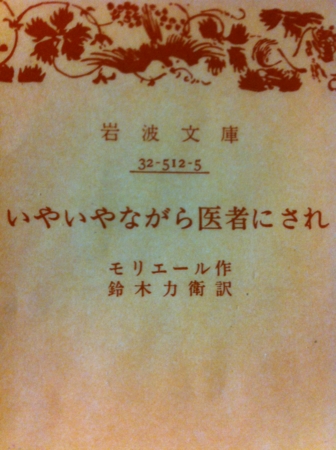 岩波文庫
32-512-5
いやいやながら医者にされ
モリエール作
鈴木力衛訳